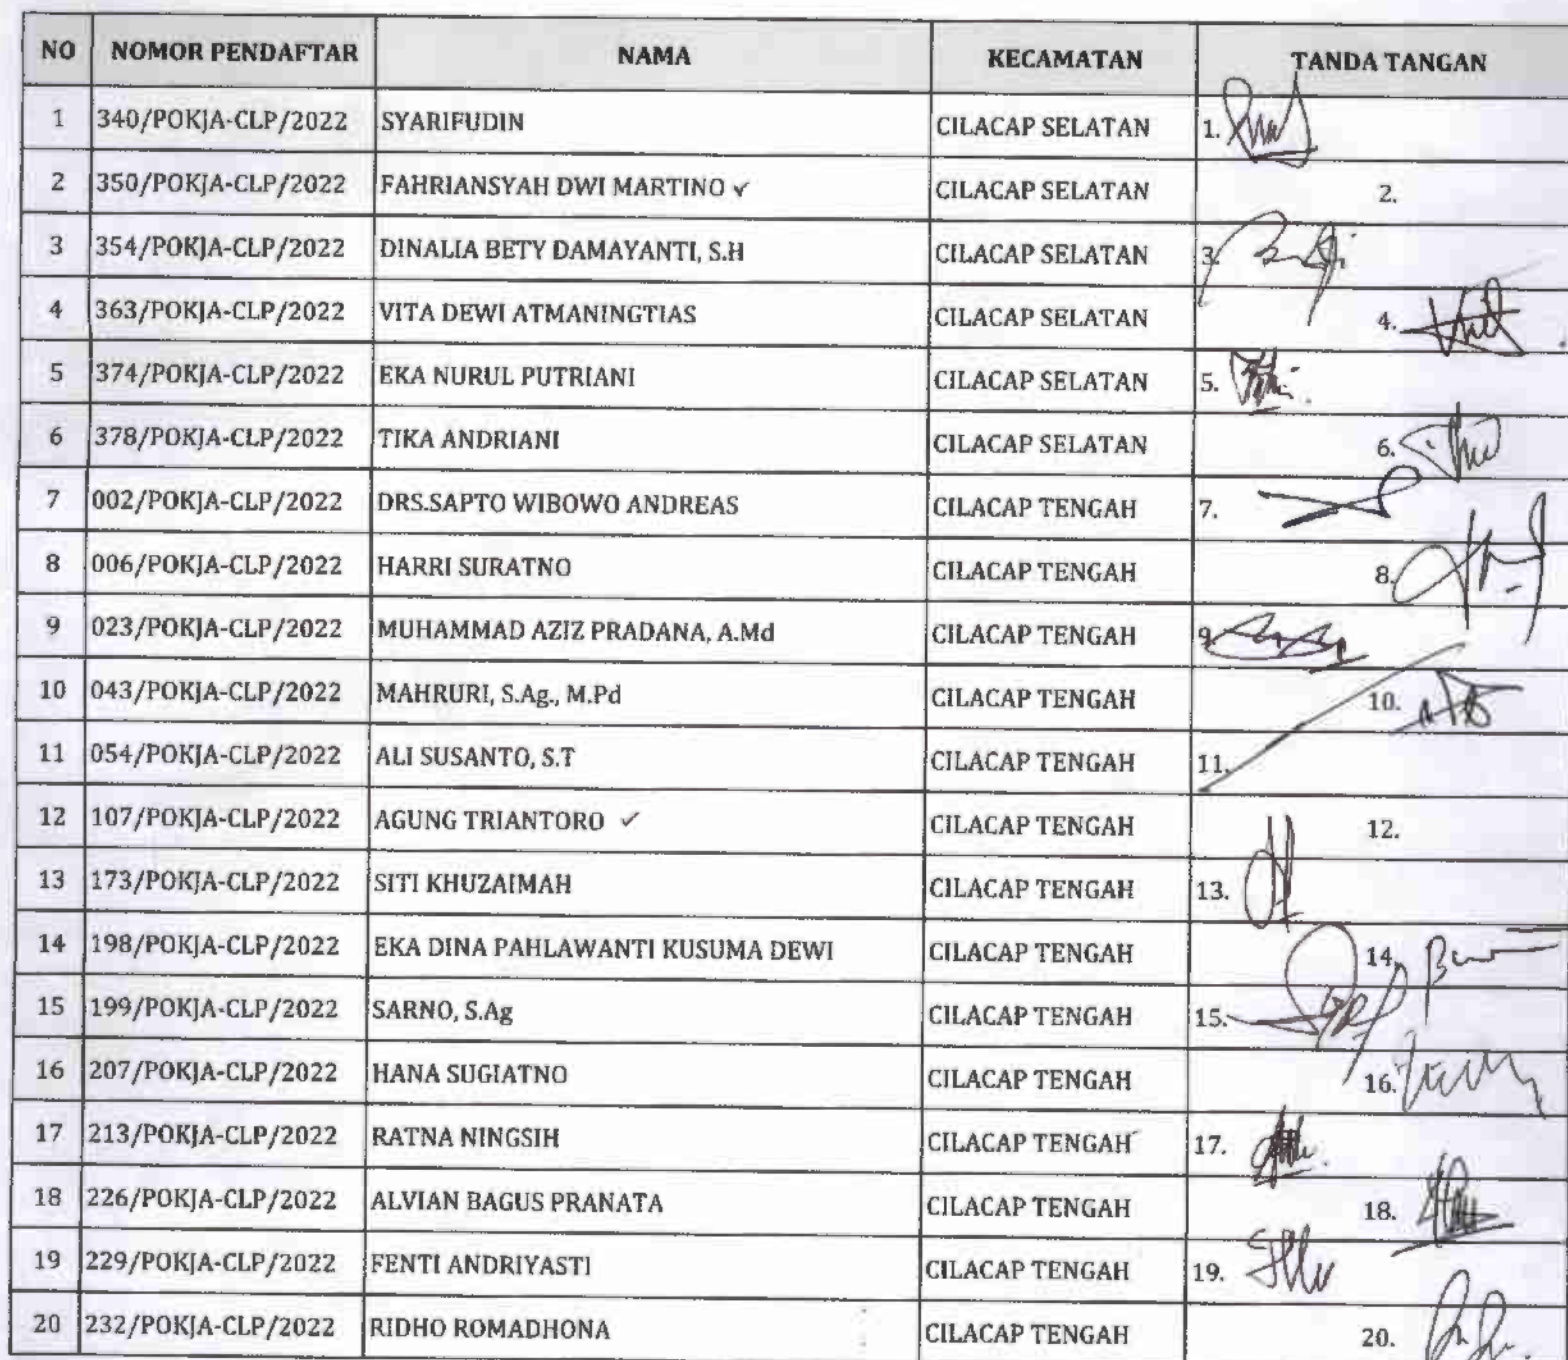 NO NOMOR PENDAFTAR NAMA KECAMATAN TANDA TANGAN
1 340/POKJA-CLP/2022 SYARIFUDIN CILACAP SELATAN 1.
2 350/POKJA-CLP/2022 FAHRIANSYAH DWI MARTINO ✓ CILACAP SELATAN 2.
3 354/POKJA-CLP/2022 DINALIA BETY DAMAYANTI, S.H CILACAP SELATAN 3.
4 363/POKJA-CLP/2022 VITA DEWI ATMANINGTIAS CILACAP SELATAN 4.
5 374/POKJA-CLP/2022 EKA NURUL PUTRIANI CILACAP SELATAN 5.
6 378/POKJA-CLP/2022 TIKA ANDRIANI CILACAP SELATAN 6.
7 002/POKJA-CLP/2022 DRS.SAPTO WIBOWO ANDREAS CILACAP TENGAH 7.
8 006/POKJA-CLP/2022 HARRI SURATNO CILACAP TENGAH 8.
9 023/POKJA-CLP/2022 MUHAMMAD AZIZ PRADANA, A.Md CILACAP TENGAH 9.
10 043/POKJA-CLP/2022 MAHRURI, S.Ag., M.Pd CILACAP TENGAH 10.
11 054/POKJA-CLP/2022 ALI SUSANTO, S.T CILACAP TENGAH 11.
12 107/POKJA-CLP/2022 AGUNG TRIANTORO ✓ CILACAP TENGAH 12.
13 173/POKJA-CLP/2022 SITI KHUZAIMAH CILACAP TENGAH 13.
14 198/POKJA-CLP/2022 EKA DINA PAHLAWANTI KUSUMA DEWI CILACAP TENGAH 14.
15 199/POKJA-CLP/2022 SARNO, S.Ag CILACAP TENGAH 15.
16 207/POKJA-CLP/2022 HANA SUGIATNO CILACAP TENGAH 16.
17 213/POKJA-CLP/2022 RATNA NINGSIH CILACAP TENGAH 17.
18 226/POKJA-CLP/2022 ALVIAN BAGUS PRANATA CILACAP TENGAH 18.
19 229/POKJA-CLP/2022 FENTI ANDRIYASTI CILACAP TENGAH 19.
20 232/POKJA-CLP/2022 RIDHO ROMADHONA CILACAP TENGAH 20.